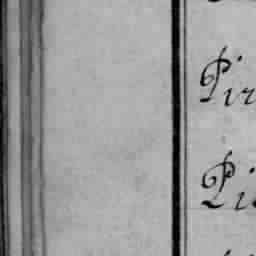 Pir
Pi